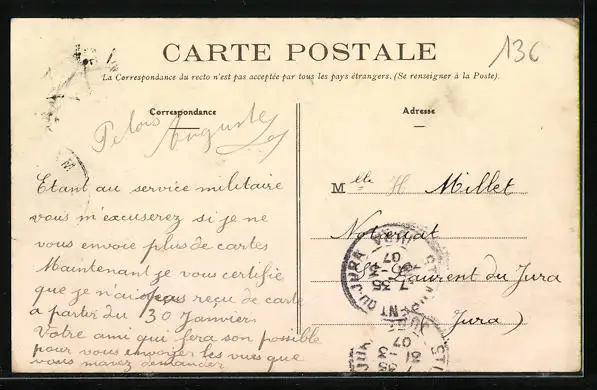 CARTE POSTALE
136
La Correspondance du recto n'est pas acceptée par tous les pays étrangers. (Se renseigner à la Poste).
Correspondance
Auguste
Etant au service militaire
vous m'excuserez si je ne
vous envoie plus de cartes
Maintenant je vous certifie
que je n'ai pas reçu de carte
a partir du 30 Janviers
Votre ami qui fera son possible
pour vous envoyer les vues que
vous m'avez demander
Adresse
Mlle H Millet
Notariat
St Laurent du Jura
Jura)
ST LAURENT DU JURA
7 35
07